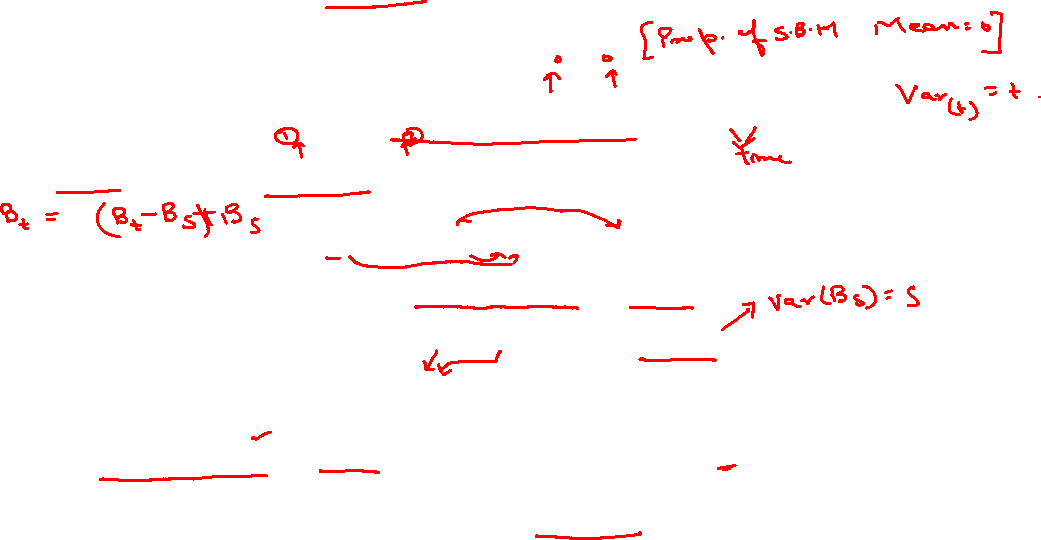 [Prop. of S.B.M Mean = 0]
0 0
Var(t) = t.
① ②
time
Bt = (Bt - Bs) + Bs
Var(Bs) = S